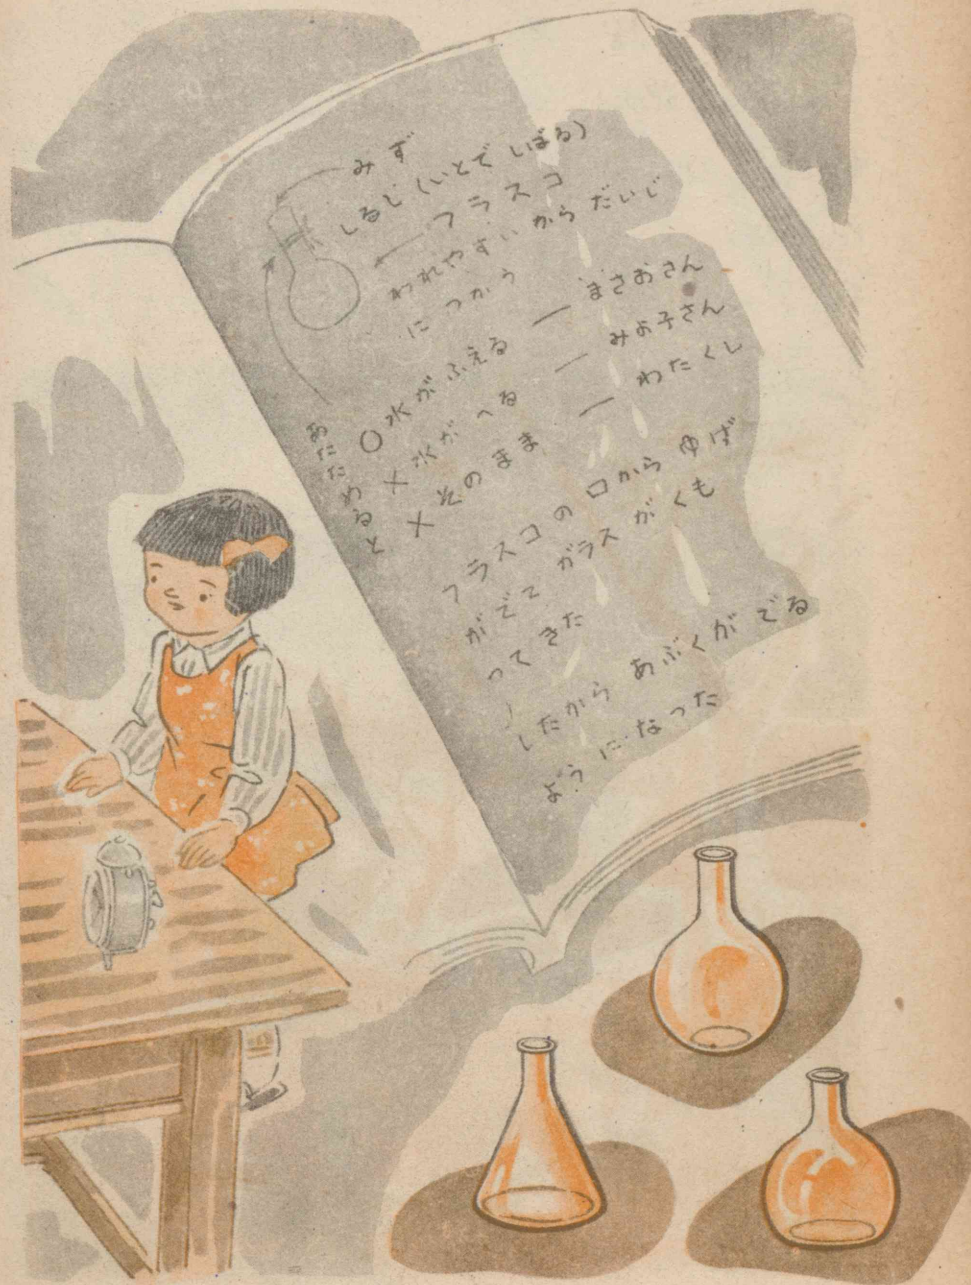 みず
しるし(いとで しばる)
フラスコ
われやすい から だいじ
に つかう
あたためると
○ 水が ふえる — まさおさん
× 水が へる — みよ子さん
× そのまま — わたくし
フラスコ の 口から ゆげ
が でて ガラス が くも
って きた
したから あぶくが でる
ように なった